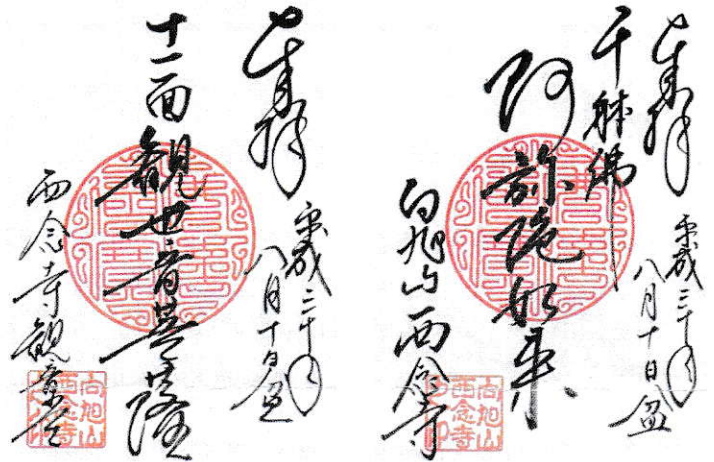 奉拝
平成三十年
八月十日盆
千躰佛
阿弥陀如来
向旭山西念寺
向旭山
西念寺
之印
奉拝
平成三十年
八月十日盆
十一面観世音菩薩
西念寺観音堂
向旭山
西念寺
之印